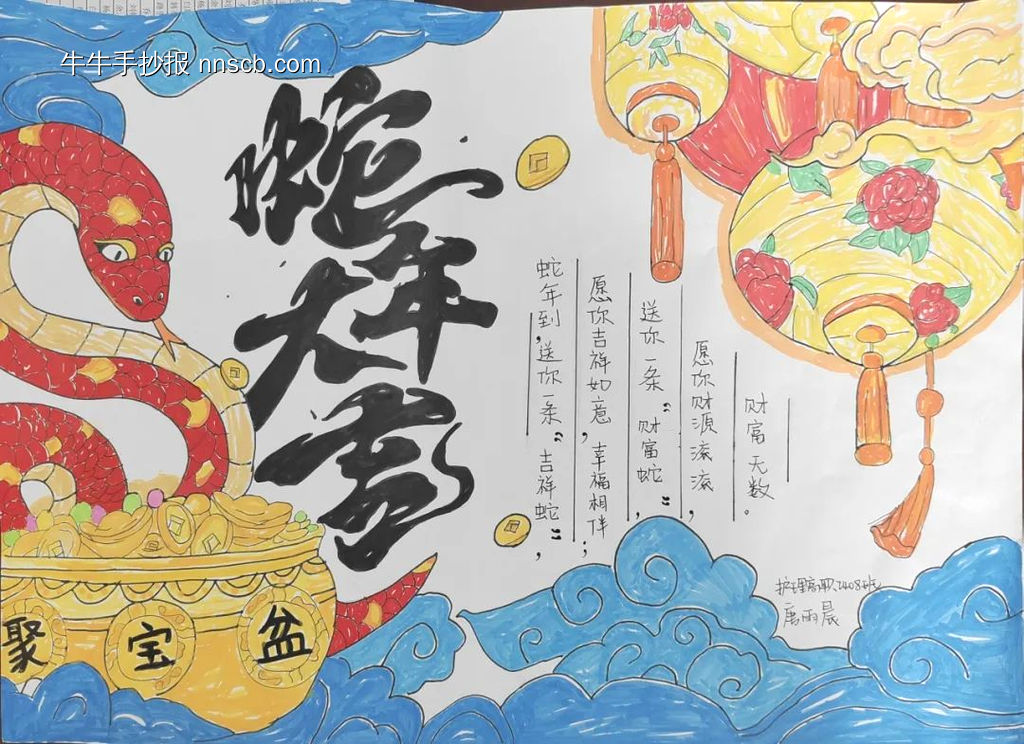 牛牛手抄报 nnscb.com
蛇年大吉
蛇年到，送你一条“吉祥蛇”，
愿你吉祥如意，幸福相伴；
送你一条“财富蛇”，
愿你财源滚滚，
财富无数。
聚宝盆
护理高职2408班
唐雨晨